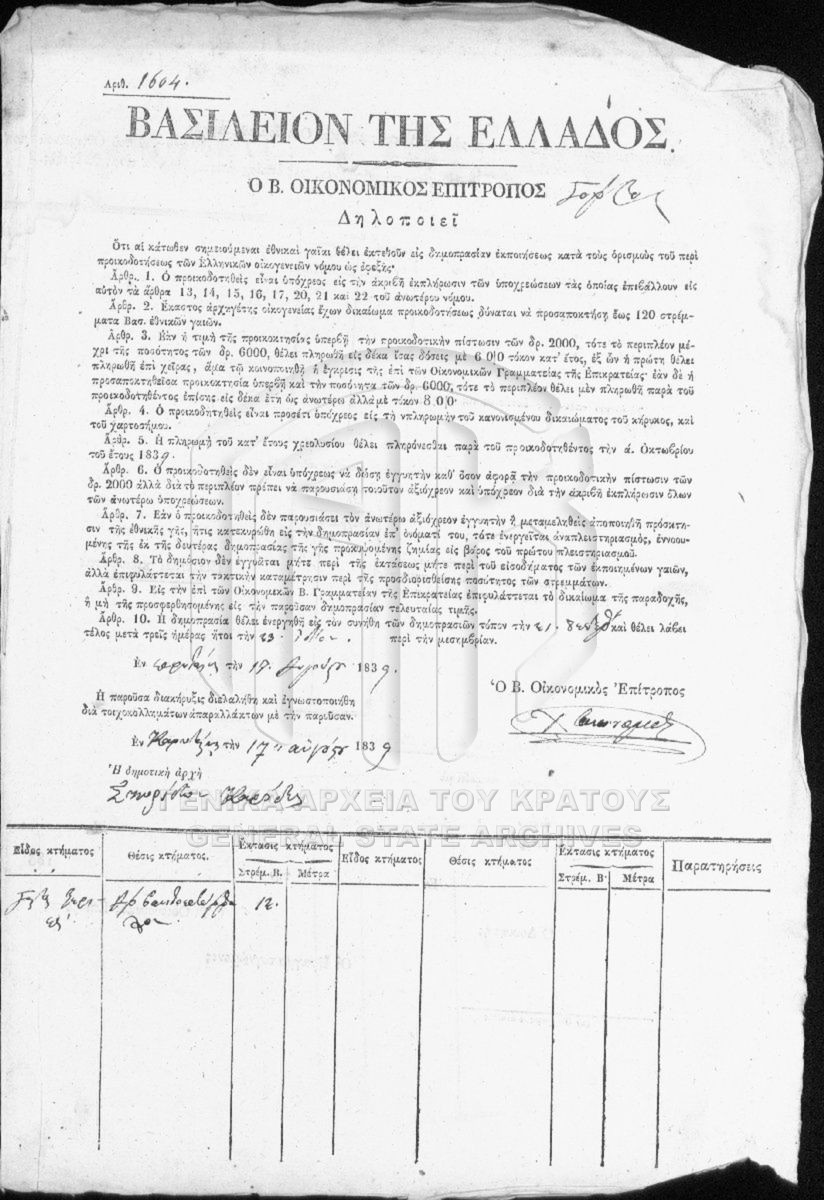 Αριθ. 1604.
ΒΑΣΙΛΕΙΟΝ ΤΗΣ ΕΛΛΑΔΟΣ.
Ὁ Β. ΟΙΚΟΝΟΜΙΚΟΣ ΕΠΙΤΡΟΠΟΣ
Δηλοποιεῖ
Ὅτι αἱ κάτωθεν σημειούμεναι ἐθνικαὶ γαῖαι θέλει ἐκτεθοῦν εἰς δημοπρασίαν ἐκποιήσεως κατὰ τοὺς ὁρισμοὺς τοῦ περὶ
προικοδοτήσεως τῶν Ἑλληνικῶν οἰκογενειῶν νόμου ὡς ἐφεξῆς·
Ἄρθρ. 1. Ὁ προικοδοτηθεὶς εἶναι ὑπόχρεος εἰς τὴν ἀκριβῆ ἐκπλήρωσιν τῶν ὑποχρεώσεων τὰς ὁποίας ἐπιβάλλουν εἰς
αὐτὸν τὰ ἄρθρα 13, 14, 15, 16, 17, 20, 21 καὶ 22 τοῦ ἀνωτέρου νόμου.
Ἄρθρ. 2. Ἕκαστος ἀρχηγέτης οἰκογενείας ἔχων δικαίωμα προικοδοτήσεως δύναται νὰ προσαποκτήσῃ ἕως 120 στρέμ-
ματα Βασ. ἐθνικῶν γαιῶν.
Ἄρθρ. 3. Ἐὰν ἡ τιμὴ τῆς προικοκτησίας ὑπερβῇ τὴν προικοδοτικὴν πίστωσιν τῶν δρ. 2000, τότε τὸ περιπλέον μέ-
χρι τῆς ποσότητος τῶν δρ. 6000, θέλει πληρωθῆ εἰς δέκα ἴσας δόσεις μὲ 6 0/0 τόκον κατ' ἔτος, ἐξ ὧν ἡ πρώτη θέλει
πληρωθῆ ἐπὶ χεῖρας, ἅμα τῷ κοινοποιηθῇ ἡ ἔγκρισις τῆς ἐπὶ τῶν Οἰκονομικῶν Γραμματείας τῆς Ἐπικρατείας· ἐὰν δὲ ἡ
προσαποκτηθεῖσα προικοκτησία ὑπερβῇ καὶ τὴν ποσότητα τῶν δρ. 6000, τότε τὸ περιπλέον θέλει μὲν πληρωθῆ παρὰ τοῦ
προικοδοτηθέντος ἐπίσης εἰς δέκα ἔτη ὡς ἀνωτέρω ἀλλὰ μὲ τόκον 8 0/0·
Ἄρθρ. 4. Ὁ προικοδοτηθεὶς εἶναι προσέτι ὑπόχρεος εἰς τὴν πληρωμὴν τοῦ κανονισμένου δικαιώματος τοῦ κήρυκος, καὶ
τοῦ χαρτοσήμου.
Ἄρθρ. 5. Ἡ πληρωμὴ τοῦ κατ' ἔτους χρεολυσίου θέλει πληρόνεσθαι παρὰ τοῦ προικοδοτηθέντος τὴν ά. Ὀκτωβρίου
τοῦ ἔτους 1839.
Ἄρθρ. 6. Ὁ προικοδοτηθεὶς δὲν εἶναι ὑπόχρεως νὰ δώσῃ ἐγγυητὴν καθ' ὅσον ἀφορᾷ τὴν προικοδοτικὴν πίστωσιν τῶν
δρ. 2000 ἀλλὰ διὰ τὸ περιπλέον πρέπει νὰ παρουσιάσῃ τοιοῦτον ἀξιόχρεον καὶ ὑπόχρεον διὰ τὴν ἀκριβῆ ἐκπλήρωσιν ὅλων
τῶν ἀνωτέρω ὑποχρεώσεων.
Ἄρθρ. 7. Ἐὰν ὁ προικοδοτηθεὶς δὲν παρουσιάσει τὸν ἀνωτέρω ἀξιόχρεον ἐγγυητὴν ἢ μεταμεληθεὶς ἀποποιηθῇ πρόσκτη-
σιν τῆς ἐθνικῆς γῆς, ἥτις κατεκυρώθη εἰς τὴν δημοπρασίαν ἐπ' ὀνόματί του, τότε ἐνεργεῖται ἀναπλειστηριασμὸς, ἐννοου-
μένης τῆς ἐκ τῆς δευτέρας δημοπρασίας τῆς γῆς προκυψομένης ζημίας εἰς βάρος τοῦ πρώτου πλειστηριασμοῦ.
Ἄρθρ. 8. Τὸ δημόσιον δὲν ἐγγυᾶται μήτε περὶ τῆς ἐκτάσεως μήτε περὶ τοῦ εἰσοδήματος τῶν ἐκποιημένων γαιῶν,
ἀλλὰ ἐπιφυλάττεται τὴν τακτικὴν καταμέτρησιν περὶ τῆς προσδιορισθείσης ποσότητος τῶν στρεμμάτων.
Ἄρθρ. 9. Εἰς τὴν ἐπὶ τῶν Οἰκονομικῶν Β. Γραμματείαν τῆς Ἐπικρατείας ἐπιφυλάττεται τὸ δικαίωμα τῆς παραδοχῆς,
ἢ μὴ τῆς προσφερθησομένης εἰς τὴν παροῦσαν δημοπρασίαν τελευταίας τιμῆς.
Ἄρθρ. 10. Ἡ δημοπρασία θέλει ἐνεργηθῆ εἰς τὸν συνήθη τῶν δημοπρασιῶν τόπον τὴν 21. καὶ θέλει λάβει
τέλος μετὰ τρεῖς ἡμέρας ἤτοι τὴν 23. περὶ τὴν μεσημβρίαν.
Ἐν τὴν 17. Αὐγούστου 1839.
Ὁ Β. Οἰκονομικὸς Ἐπίτροπος
Ἡ παροῦσα διακήρυξις διελαλήθη καὶ ἐγνωστοποιήθη
διὰ τοιχοκολλημάτων ἀπαραλλάκτων μὲ τὴν παροῦσαν.
Ἐν τὴν 17 αὐγούστου 1839
Ἡ δημοτικὴ ἀρχὴ
ΓΕΝΙΚΑ ΑΡΧΕΙΑ ΤΟΥ ΚΡΑΤΟΥΣ
GENERAL STATE ARCHIVES
Εἶδος κτήματος Θέσις κτήματος. Ἔκτασις κτήματος Εἶδος κτήματος Θέσις κτήματος Ἔκτασις κτήματος Παρατηρήσεις
Στρέμ. Β. Μέτρα Στρέμ. Β· Μέτρα
12.